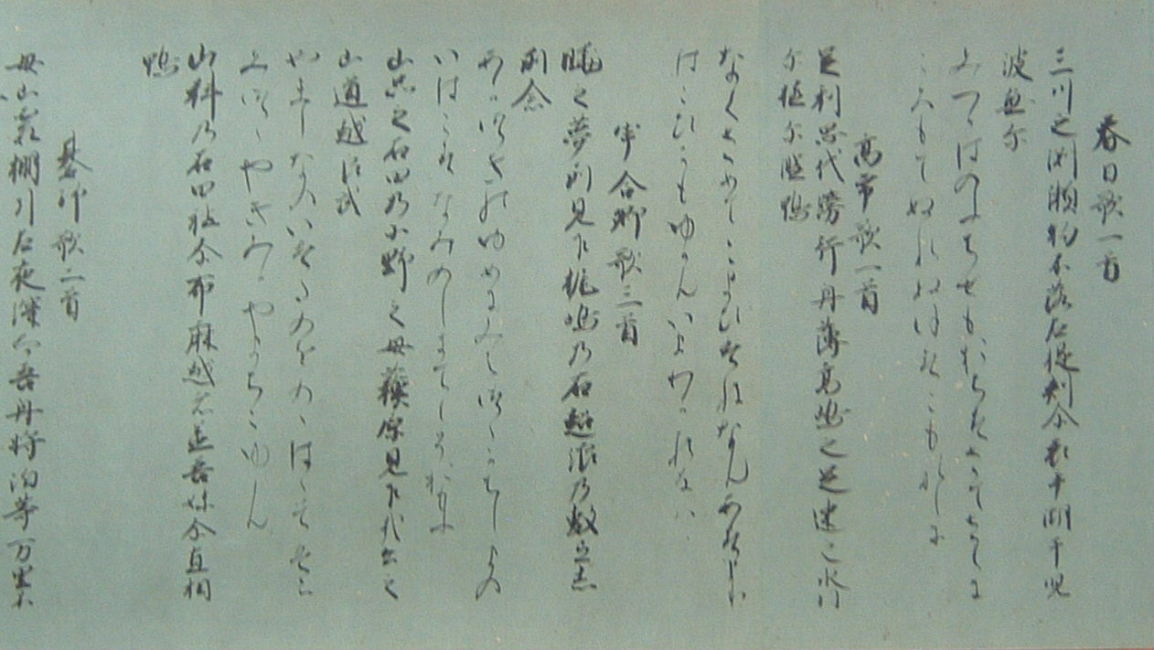 春日歌一首
三川之渕瀬物不落左提刺尓衣手潤干児
波無尓
みつかはのふちせもおちすさてさすに
ころもてぬれぬほすこもなしに
高市歌一首
足利思代榜行舟薄高嶋之足速之水門
尓極尓監鴨
なくさめてこよひはねなんあすよりは
こひかもゆかんいまわかれなは
宇合卿歌三首
暁之夢所見乍梶嶋乃石超浪乃敷弖志
所念
あかつきのゆめにみえつゝかちしまの
いはこえなみのしきてし
山品之石田乃小野之母蘇原見乍哉公之
山道越良武
やましなのいはたのをのゝはゝそはら
みつゝやきみかやまちこゆらん
山科乃石田社尓布麻越者蓋吾妹尓直相
鴨
碁師歌二首
母山霞棚引左夜深而吾舟将泊等万里不